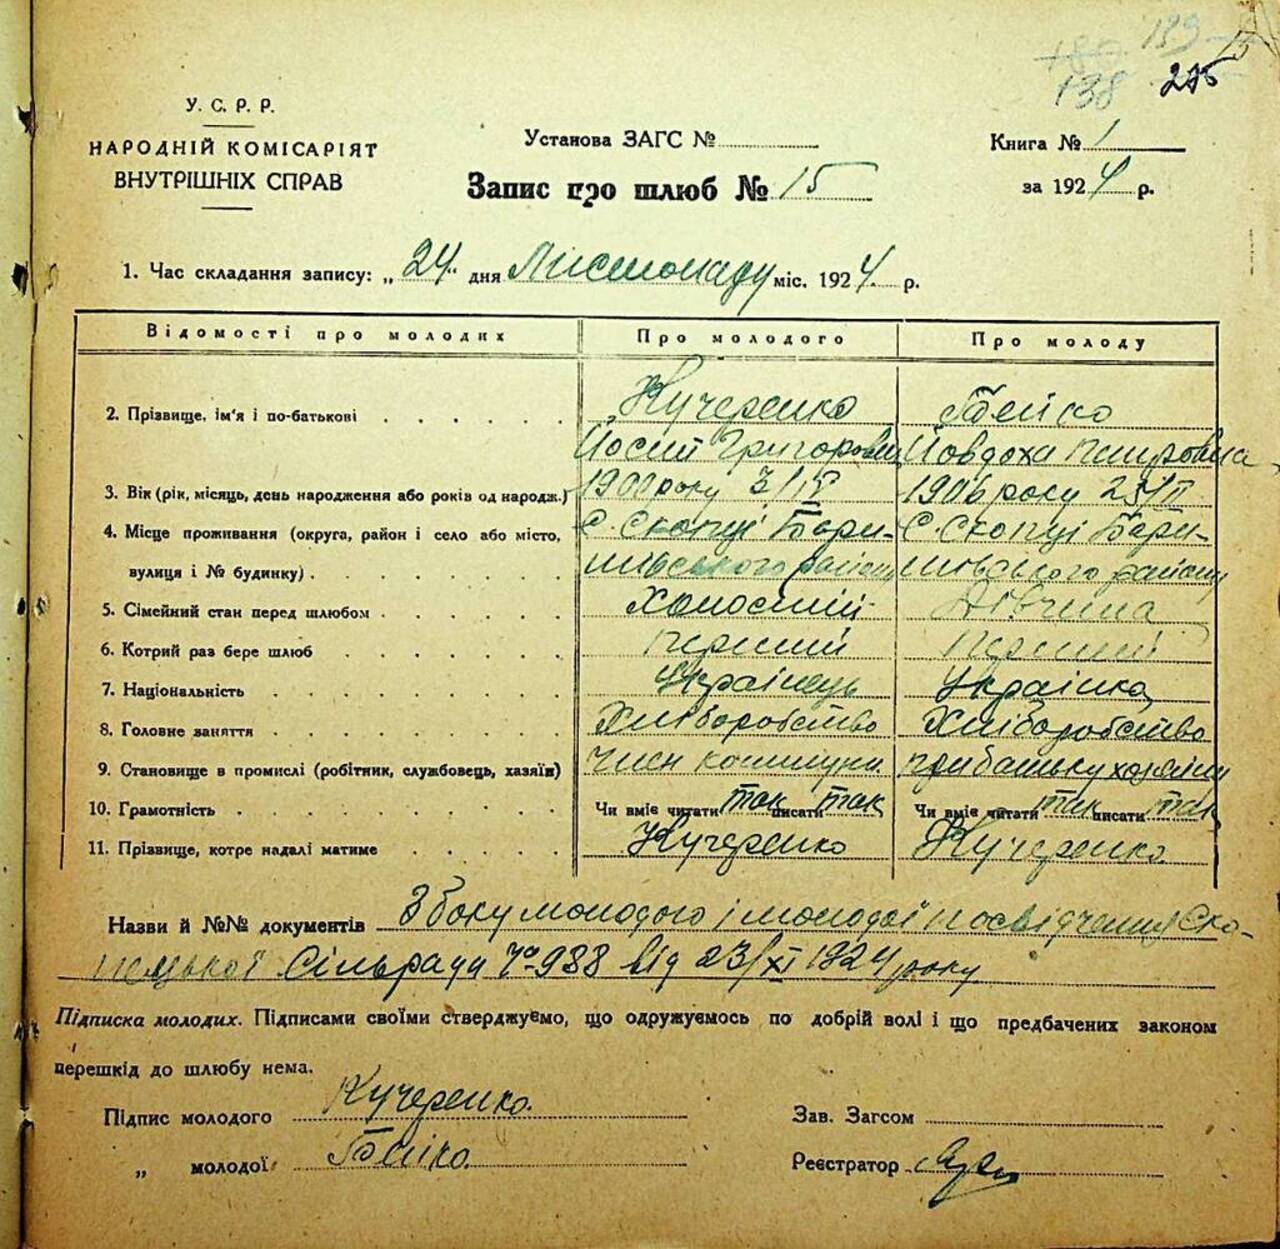 133 15
180
138 215
У. С. Р. Р.
НАРОДНІЙ КОМІСАРІЯТ
ВНУТРІШНІХ СПРАВ
Установа ЗАГС №
Запис про шлюб № 15
Книга № 1
за 1924 р.
1. Час складання запису: „24" дня Листопаду міс. 1924. р.
Відомості про молодих Про молодого Про молоду
2. Прізвище, ім'я і по-батькові Кучеренко Бойко
Йосип Григорович Йовдоха Петровна
3. Вік (рік, місяць, день народження або років од народж.) 1900 року 3/IV 1906 року 25/II
4. Місце проживання (округа, район і село або місто, С. Скопці Бари- С. Скопці Бари-
вулиця і № будинку) шівського району шовського району
5. Сімейний стан перед шлюбом Холостий Дівчина
6. Котрий раз бере шлюб перший перший
7. Національність Українець Українка
8. Головне заняття Хліборобство Хліборобство
9. Становище в промислі (робітник, службовець, хазяїн) член комуни при батьку хозяїну
10. Грамотність Чи вміє читати так писати так Чи вміє читати так писати так
11. Прізвище, котре надалі матиме Кучеренко Кучеренко
Назви й №№ документів З боку молодого і молодої посвідчення Ско-
пецької Сільради № 988 від 23/XI 1924 року
Підписка молодих. Підписами своїми стверджуємо, що одружуємось по добрій волі і що предбачених законом
перешкід до шлюбу нема.
Підпис молодого Кучеренко. Зав. Загсом
„ молодої Бойко. Реєстратор